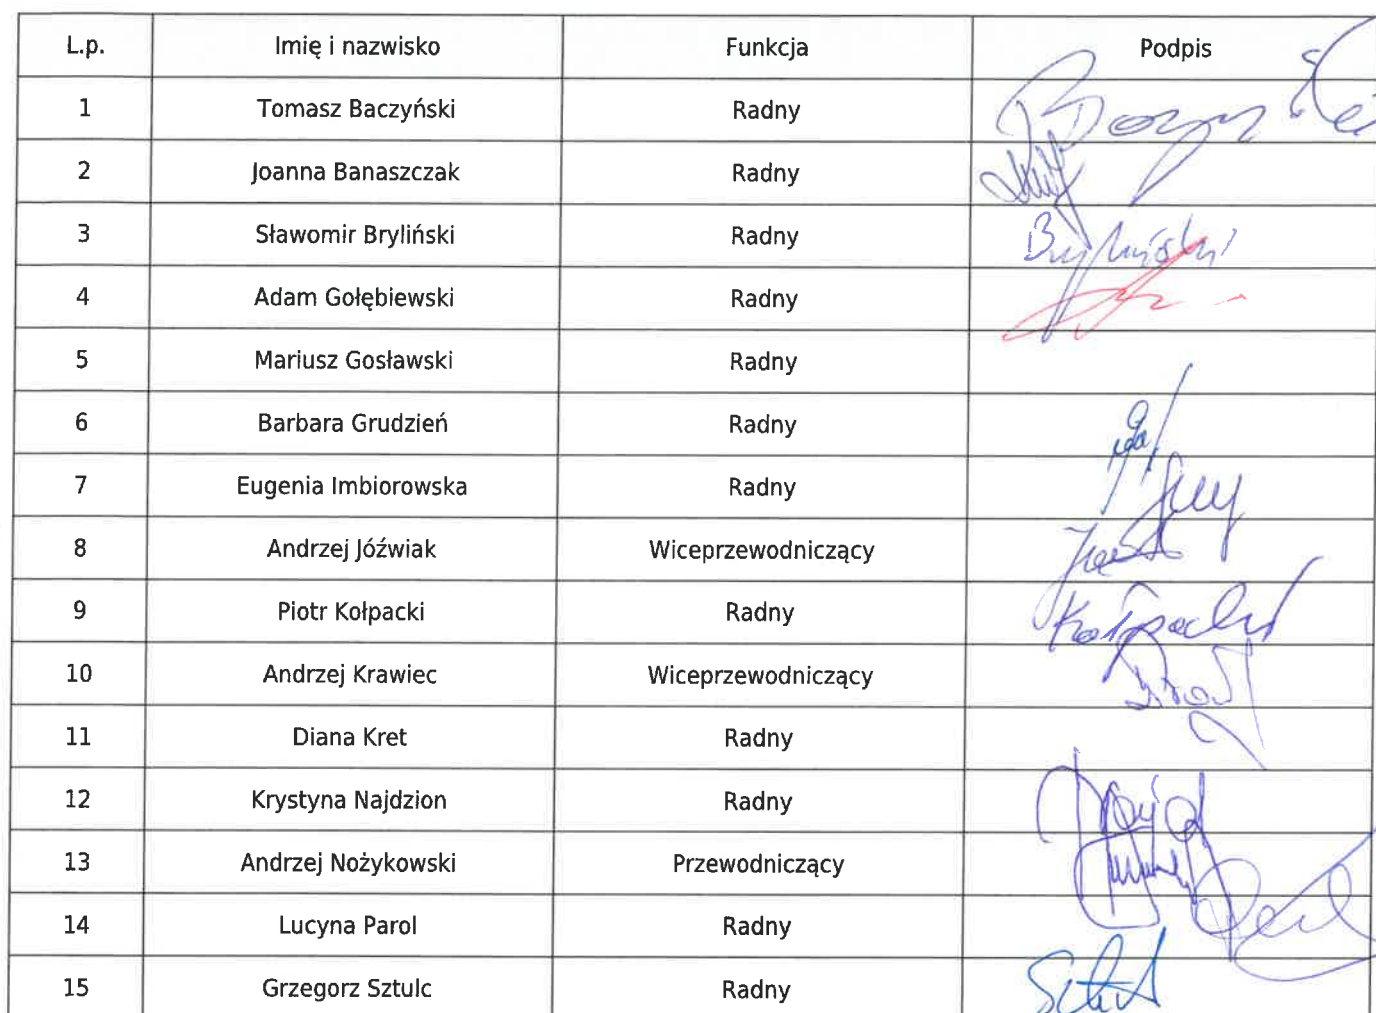 L.p. Imię i nazwisko Funkcja Podpis
1 Tomasz Baczyński Radny
2 Joanna Banaszczak Radny
3 Sławomir Bryliński Radny Bryliński
4 Adam Gołębiewski Radny
5 Mariusz Gosławski Radny
6 Barbara Grudzień Radny
7 Eugenia Imbiorowska Radny
8 Andrzej Jóźwiak Wiceprzewodniczący
9 Piotr Kołpacki Radny Kołpacki
10 Andrzej Krawiec Wiceprzewodniczący
11 Diana Kret Radny
12 Krystyna Najdzion Radny
13 Andrzej Nożykowski Przewodniczący
14 Lucyna Parol Radny
15 Grzegorz Sztulc Radny